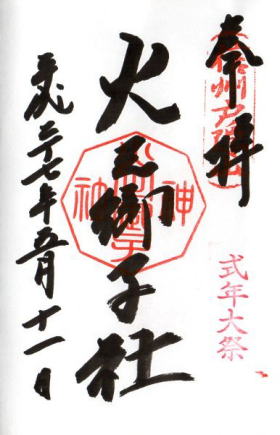 奉拝
信州戸隠山
式年大祭
火之御子社
平成二十七年五月十一日